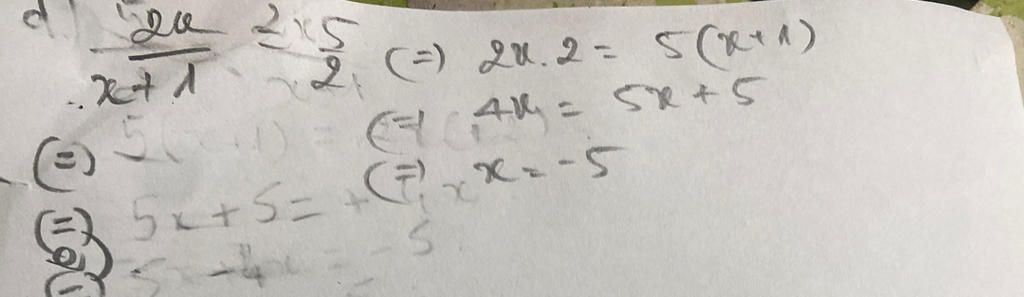 d) 2x/(x+1) = 5/2 (=) 2x.2 = 5(x+1)
(=) 4x = 5x+5
(=) 5(x+1) =
(=) x = -5
(=) 5x+5 =
5x-4x = -5